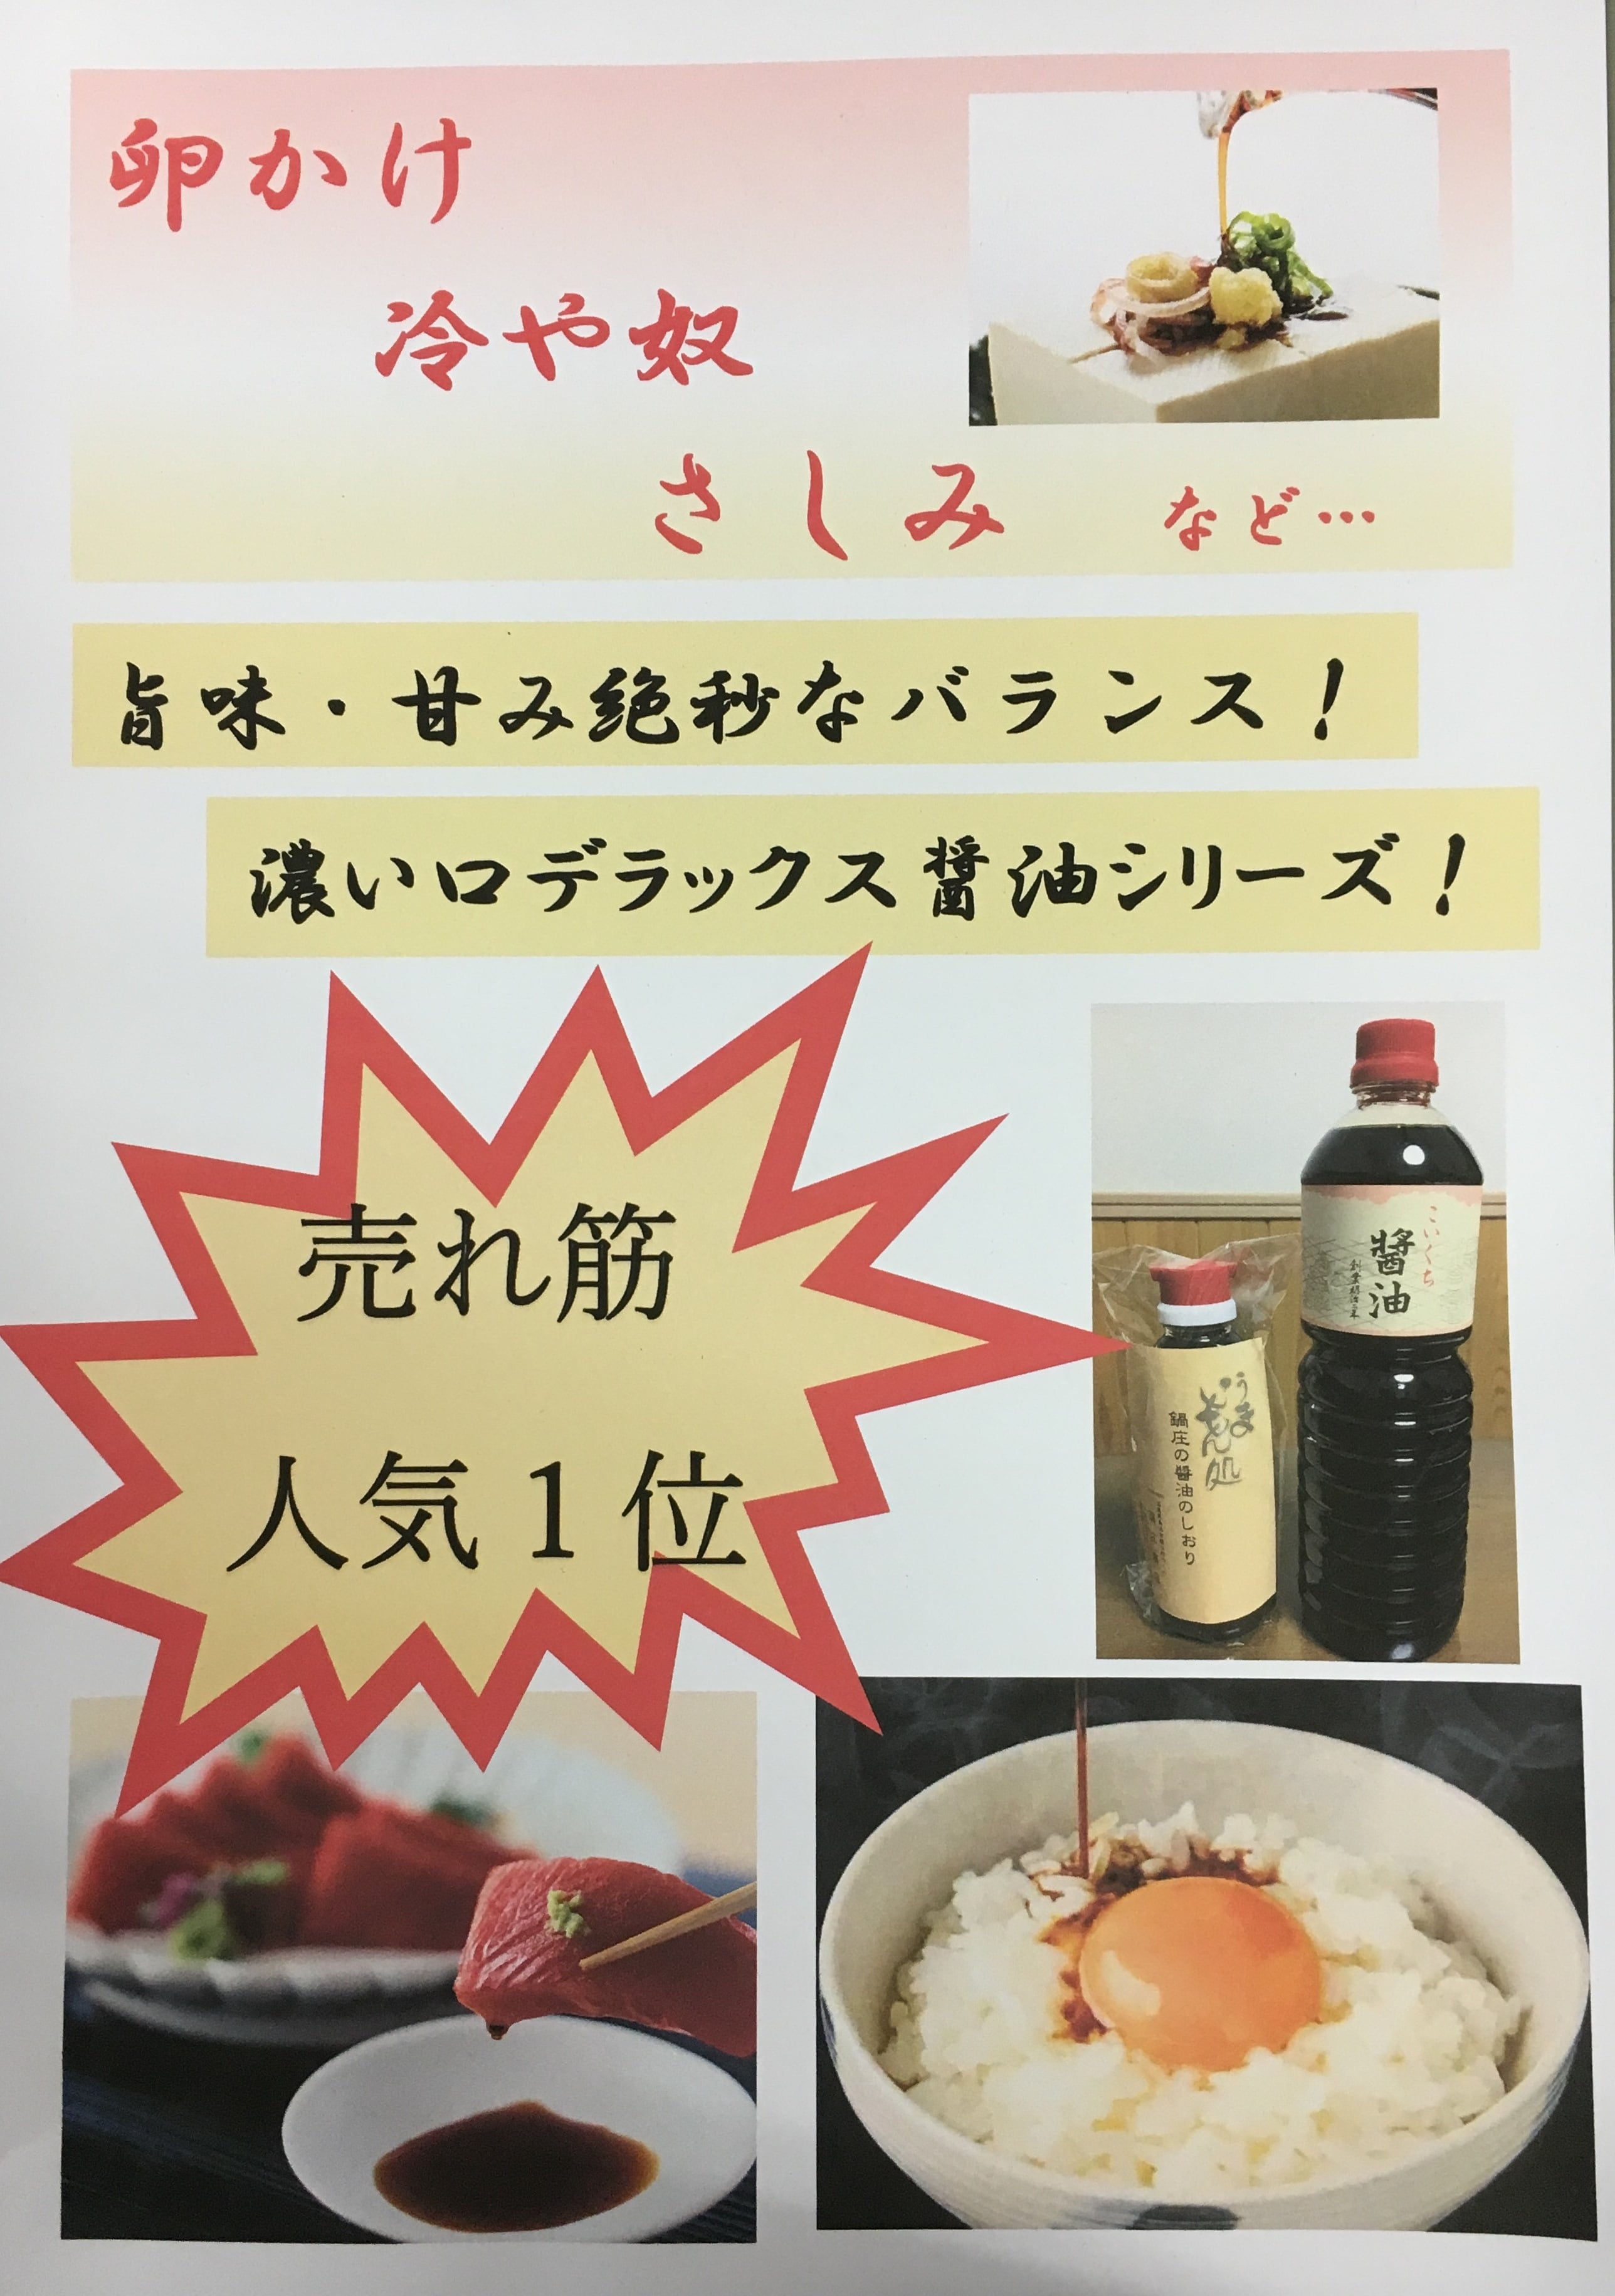 卵かけ
冷や奴
さしみ　など…
旨味・甘み絶秒なバランス！
濃い口デラックス醤油シリーズ！
売れ筋
人気１位
こいくち
醤油
創業明治二年
うまいもん処
鍋庄の醤油のしおり